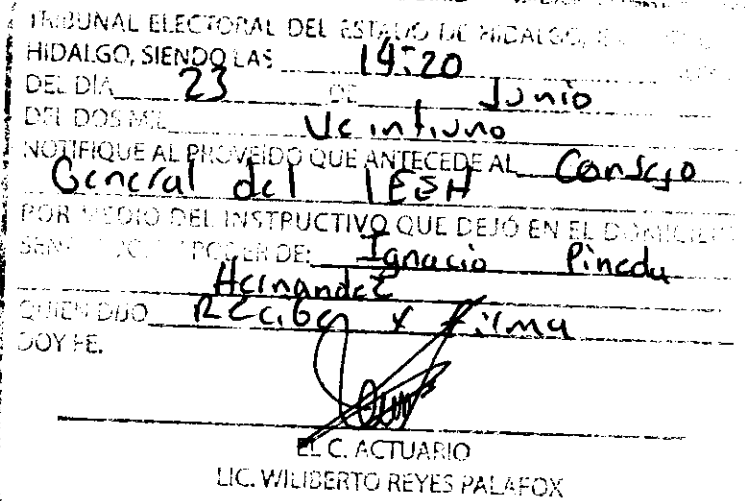 TRIBUNAL ELECTORAL DEL ESTADO DE HIDALGO,
HIDALGO, SIENDO LAS 14:20
DEL DIA 23 DE Junio
DEL DOS MIL Veintiuno
NOTIFIQUE AL PROVEIDO QUE ANTECEDE AL Consejo
General del IEEH
POR MEDIO DEL INSTRUCTIVO QUE DEJÓ EN EL DOMICILIO
PODER DE: Ignacio Pineda
Hernandez
QUIEN DIJO Recibe y firma
DOY FE.
EL C. ACTUARIO
LIC. WILIBERTO REYES PALAFOX